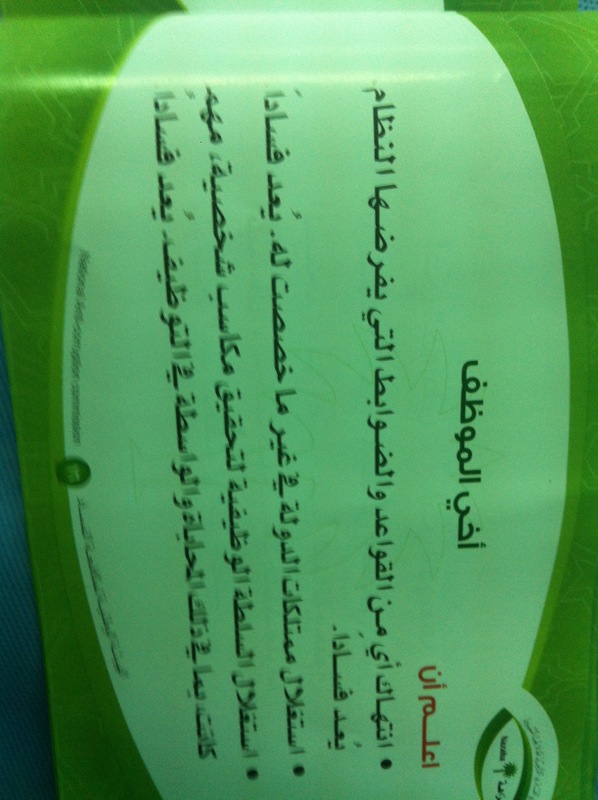 أخي الموظف
اعلم أن
• انتهاك أي من القواعد والضوابط التي يفرضها النظام
يُعد فساداً.
• استغلال ممتلكات الدولة في غير ما خصصت له. يُعد فساداً
• استغلال السلطة الوظيفية لتحقيق مكاسب شخصية، مهما
كانت، بما في ذلك المحاباة والواسطة في التوظيف. يُعد فساداً
National Anti-corruption commission